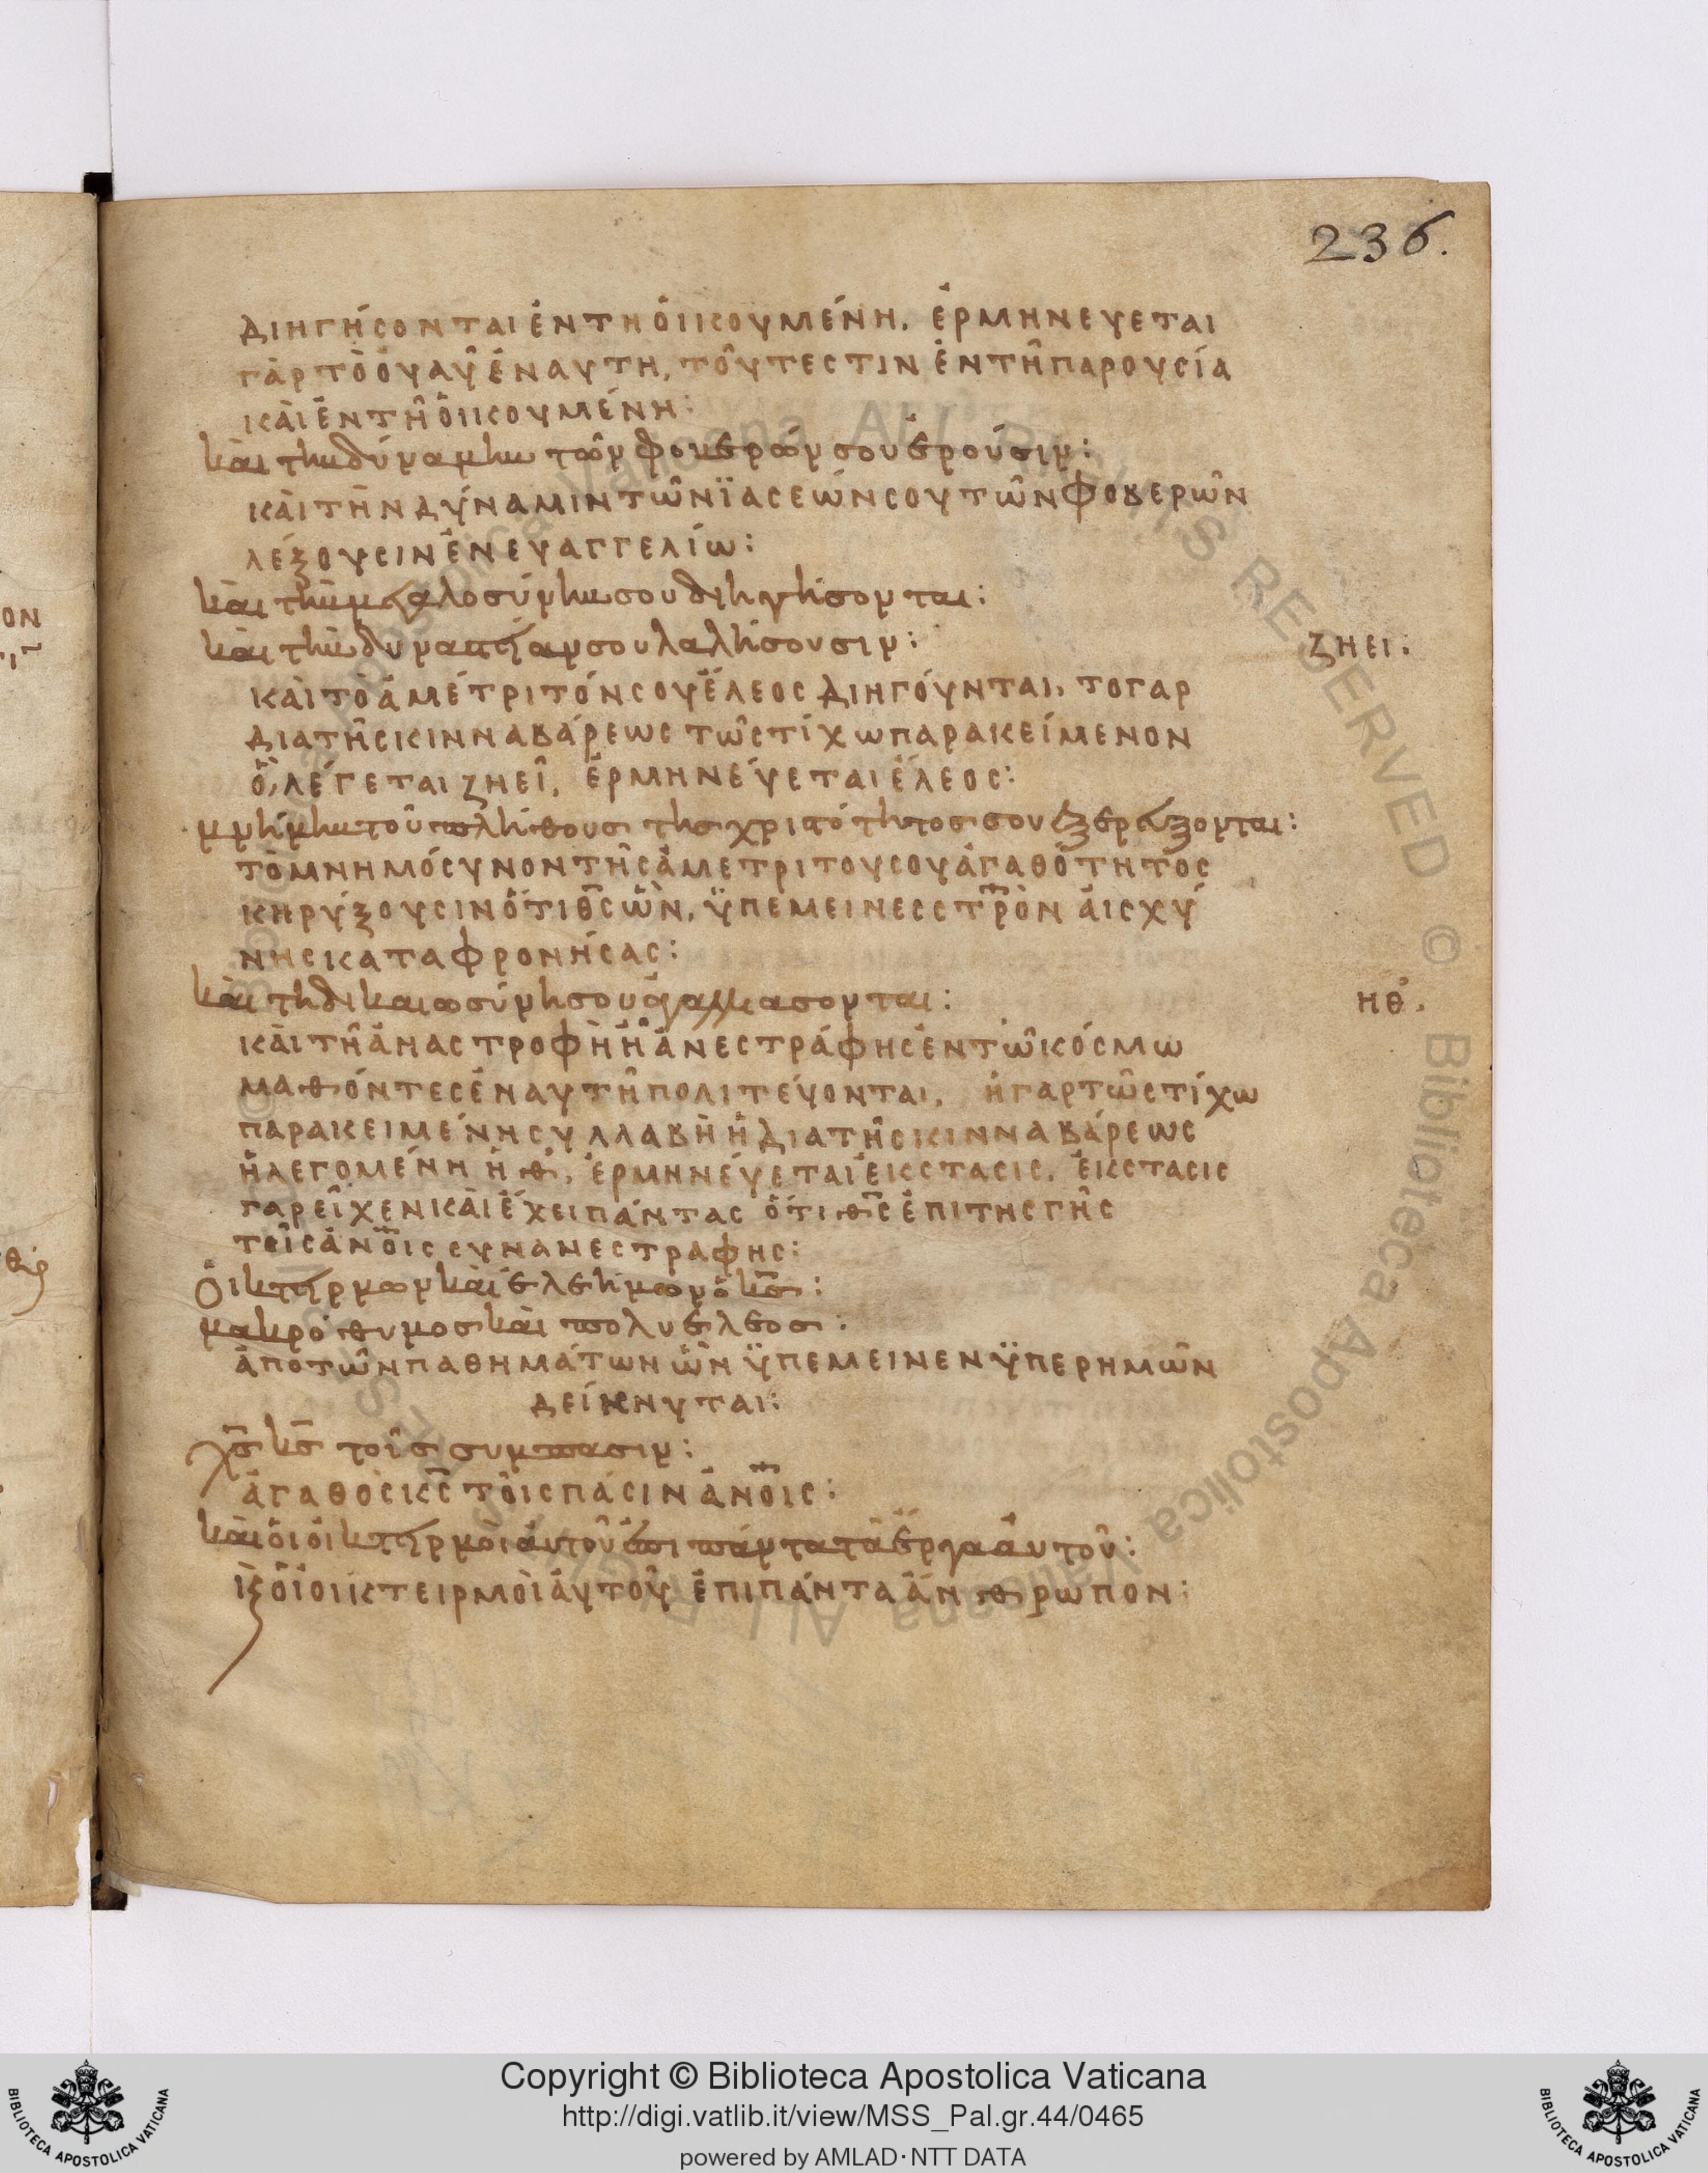 236.
διηγήσονται ἐν τῆ ὀικουμένη. ἑρμηνευεται
γὰρ τὸ ὀυαῦ ἐν αυτη, τοῦτεστιν ἐν τῆ παρουσία
καὶ ἐν τῆ ὀικουμένη:
καὶ την δύναμην τῶν φοβερῶν σου ἐρούσιν:
καὶ τὴν δύναμιν τῶν ϊασεών σου τῶν φοβερῶν
λέξουσιν ἐν ευαγγελίω:
καὶ τὴν μεγαλοσύνην σου διηγήσονται:
καὶ τὴν δυναστείαν σου λαλήσουσιν:
ζηει:
καὶ τὸ ἀμέτριτόν σου ἔλεος διηγόυνται, το γαρ
διατῆς κινναβάρεως τῶ στίχω παρακείμενον
ὃ, λέγεται ζηεῖ, ἑρμηνέυεται ἔλεος:
μνήμην τοῦ πλήθους της χριστότητος σου ἐξερεύξονται:
τὸ μνημόσυνον τῆς ἀμετριτου σου ἀγαθότητός
κηρύξουσιν ὅτι θ̅ς̅ ὢν, ϋπεμεινες σ̅τ̅ρ̅ὸν ἀισχύ
νης καταφρονήσας:
καὶ τη δικαιωσύνη σου ἀγαλλιασονται:
ηθ.
καὶ τῆ ἀναστροφὴ ἧ ἀνεστράφης ἐν τῶ κόσμω
μαθόντες ἐν αυτῆ πολιτέυονται, ἡ γαρ τῶ στίχω
παρακειμένη συλλαβὴ ἡ διατῆς κινναβάρεως
ἡ λεγομένη ἠθ, ἑρμηνέυεται ἔικστασις. ἔικστασις
γαρ εἶχεν καὶ ἔχει πάντας ὅτι θ̅ς̅ ἐπι της γῆς
τοῖς ἀ̅ν̅ο̅ις συνανεστραφης:
Ὀικτειρμων καὶ ἐλεήμων ὁ κ̅ς̅:
μακρόθυμος καὶ πολυέλεος:
ἀπο τῶν παθημάτων ὧν ϋπεμεινεν ϋπερ ημῶν
δείκνυται:
χ̅ς̅ κ̅ς̅ τοῖς συμπασιν:
ἀγαθὸς κ̅ς̅ τοῖς πάσιν ἀ̅ν̅ο̅ις:
καὶ ὁι ὀικτειρμὸι ἀυτοῦ ἐπι πάντα τὰ ἔργα ἀυτοῦ:
κ ὁι ὀικτειρμὸι ἀυτοῦ ἐπι πάντα ἄνθρωπον:
Copyright © Biblioteca Apostolica Vaticana
http://digi.vatlib.it/view/MSS_Pal.gr.44/0465
powered by AMLAD·NTT DATA
BIBLIOTECA APOSTOLICA VATICANA
BIBLIOTECA APOSTOLICA VATICANA